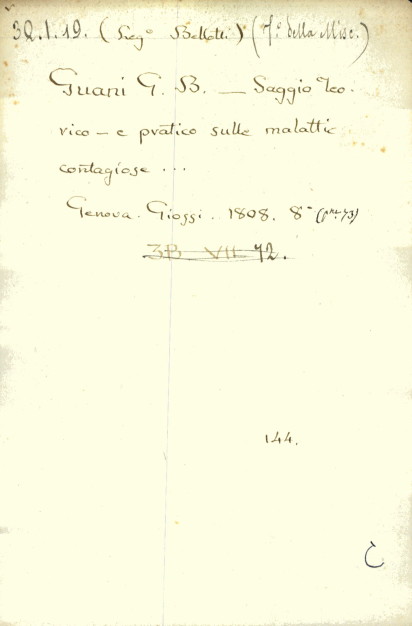 3Q.1.19. (Leg.º Bellotti) (7.º della Misc.)
Guani G. B. — Saggio teo-
rico — e pratico sulle malattie
contagiose ...
Genova. Giossi. 1808. 8º (pne. 73)
3B VII 72.
144.